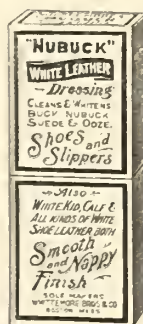 "NUBUCK"
WHITE LEATHER
Dressing
CLEANS & WHITENS
BUCK NUBUCK
SUEDE & OOZE.
Shoes and
Slippers
ALSO
WHITE KID, CALF &
ALL KINDS OF WHITE
SHOE LEATHER BOTH
Smooth
and Nappy
Finish
SOLE MAKERS
WHITTEMORE BROS. & CO
BOSTON MASS